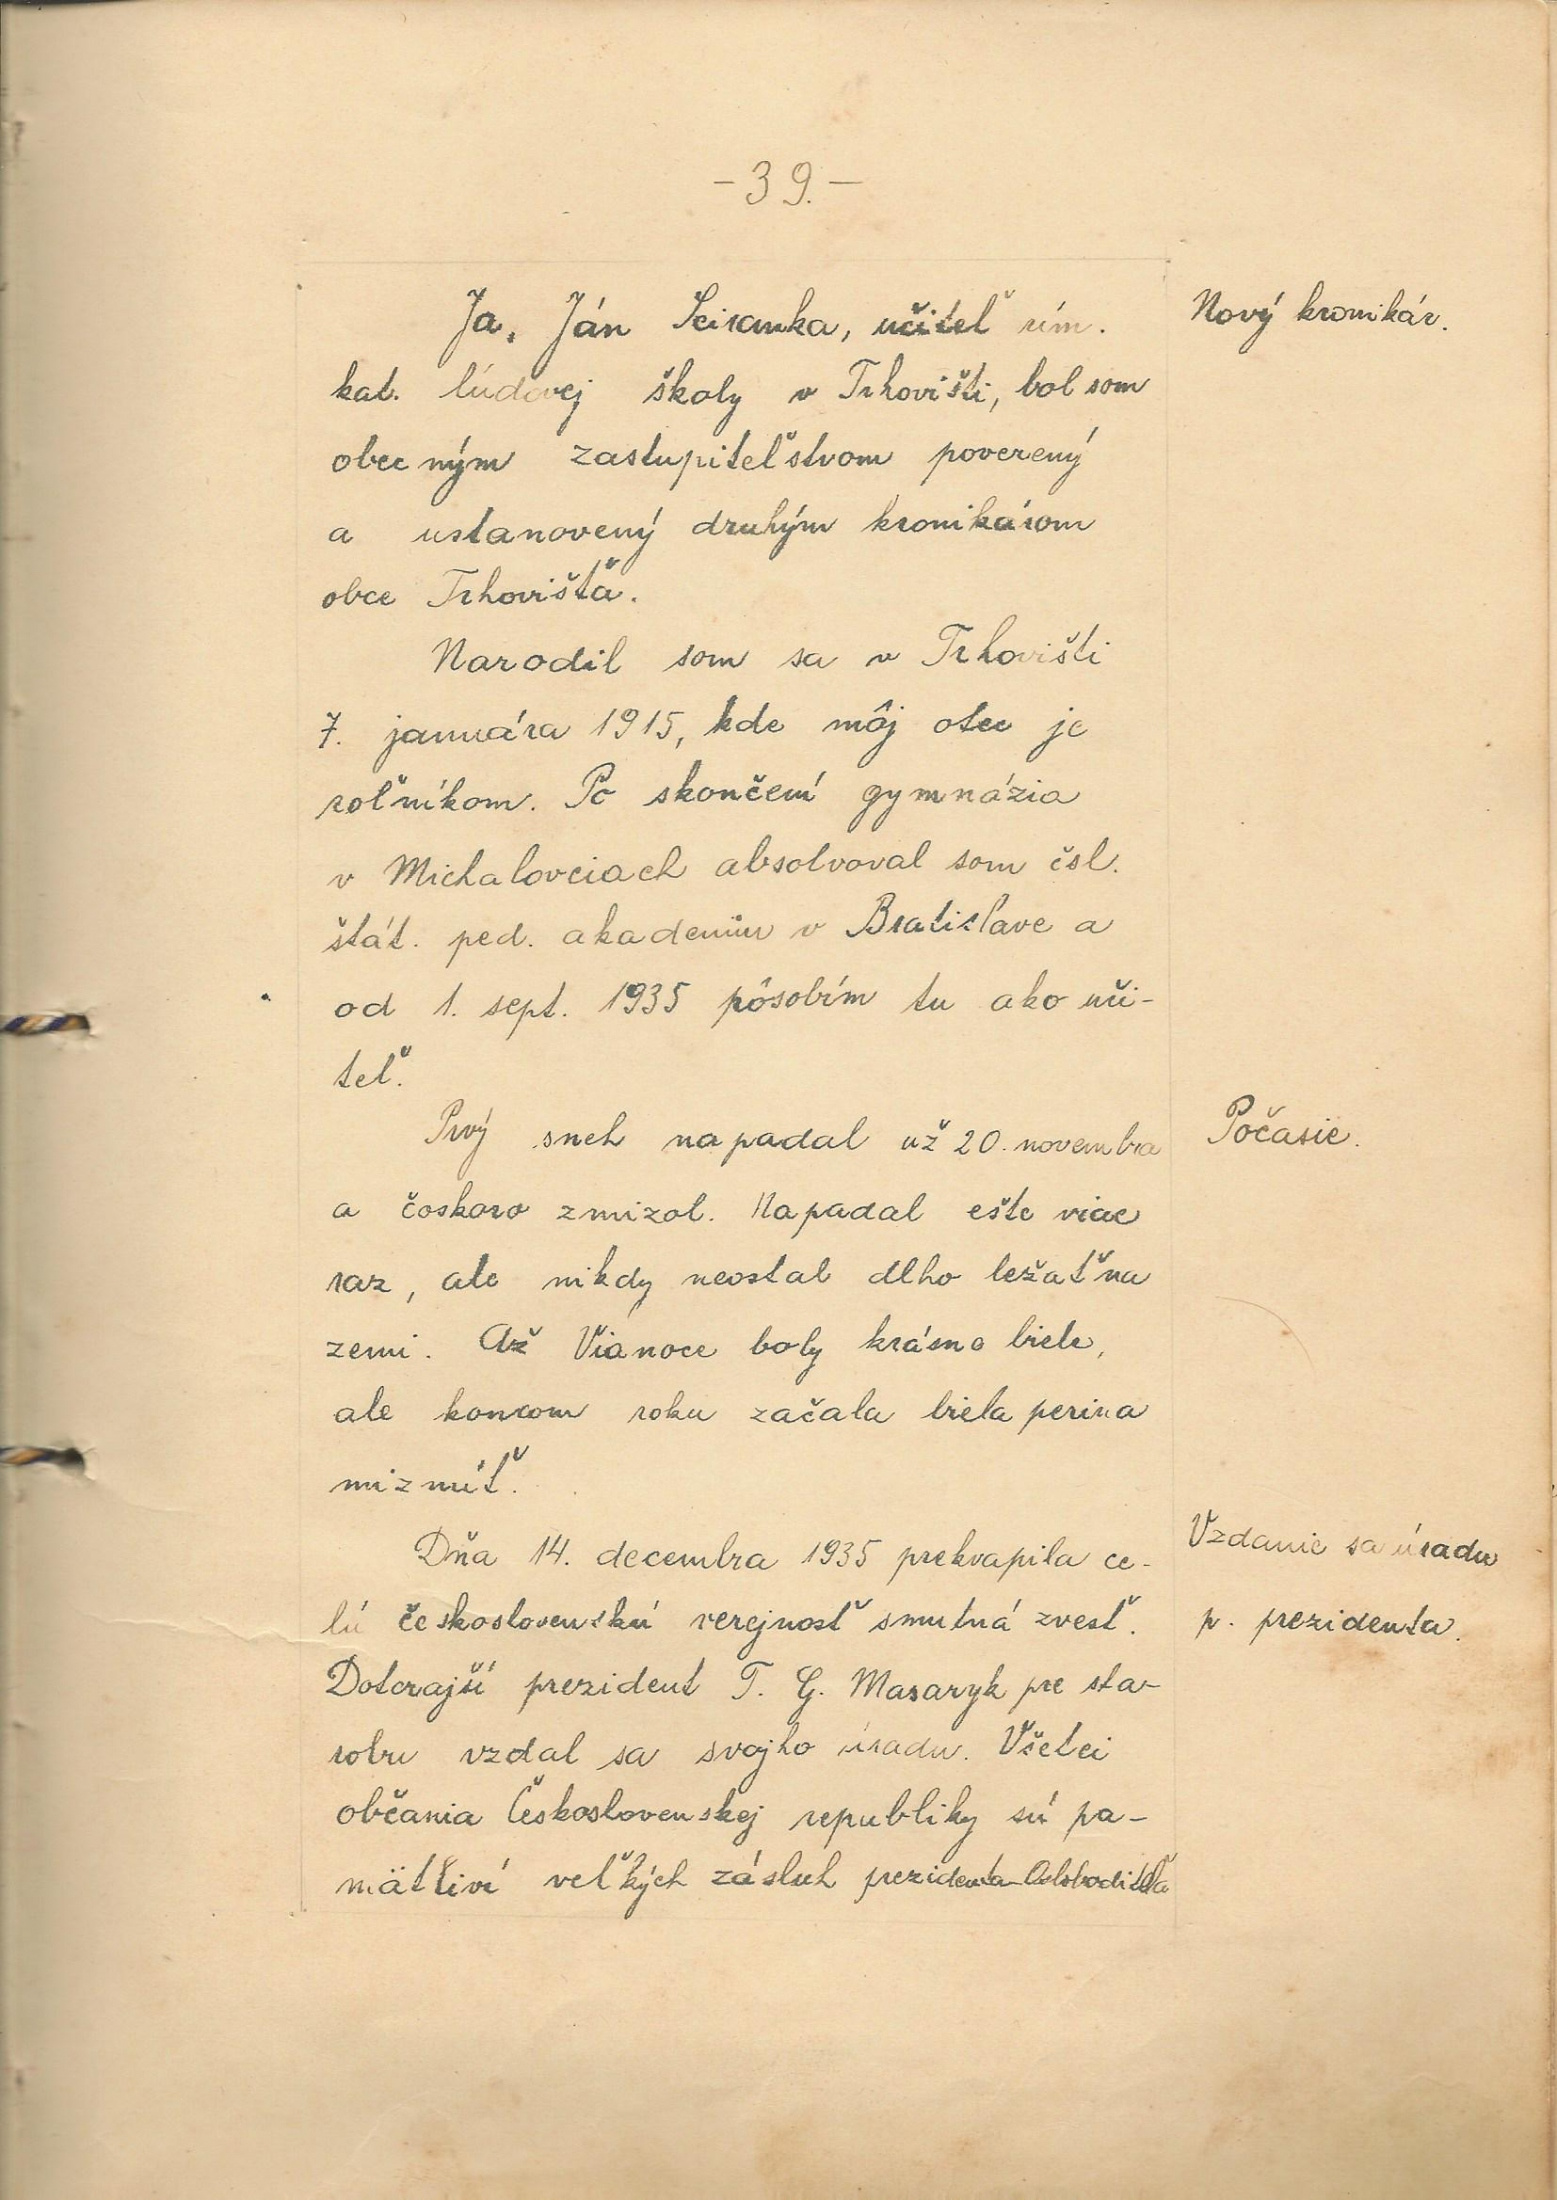 -39.-
Ja, Ján Ščiranka, učiteľ rím.
Nový kronikár.
kat. ľúdovej školy v Trhovišti, bol som
obecným zastupiteľstvom poverený
a ustanovený druhým kronikárom
obce Trhovišťa.
Narodil som sa v Trhovišti
7. januára 1915, kde môj otec je
roľníkom. Po skončení gymnázia
v Michalovciach absolvoval som čsl.
štát. ped. akademiu v Bratislave a
od 1. sept. 1935 pôsobím tu ako uči-
teľ.
Prvý sneh napadal už 20. novembra
Počasie.
a čoskoro zmizol. Napadal ešte viac
raz, ale nikdy neostal dlho ležať na
zemi. Až Vianoce boly krásno biele,
ale koncom roku začala biela perina
miznúť.
Dňa 14. decembra 1935 prekvapila ce-
Vzdanie sa úradu
lú československú verejnosť smutná zvesť.
p. prezidenta.
Doterajší prezident T. G. Masaryk pre sta-
robu vzdal sa svojho úradu. Všetci
občania Československej republiky sú pa-
mätliví veľkých zásluh prezidenta-Osloboditeľa